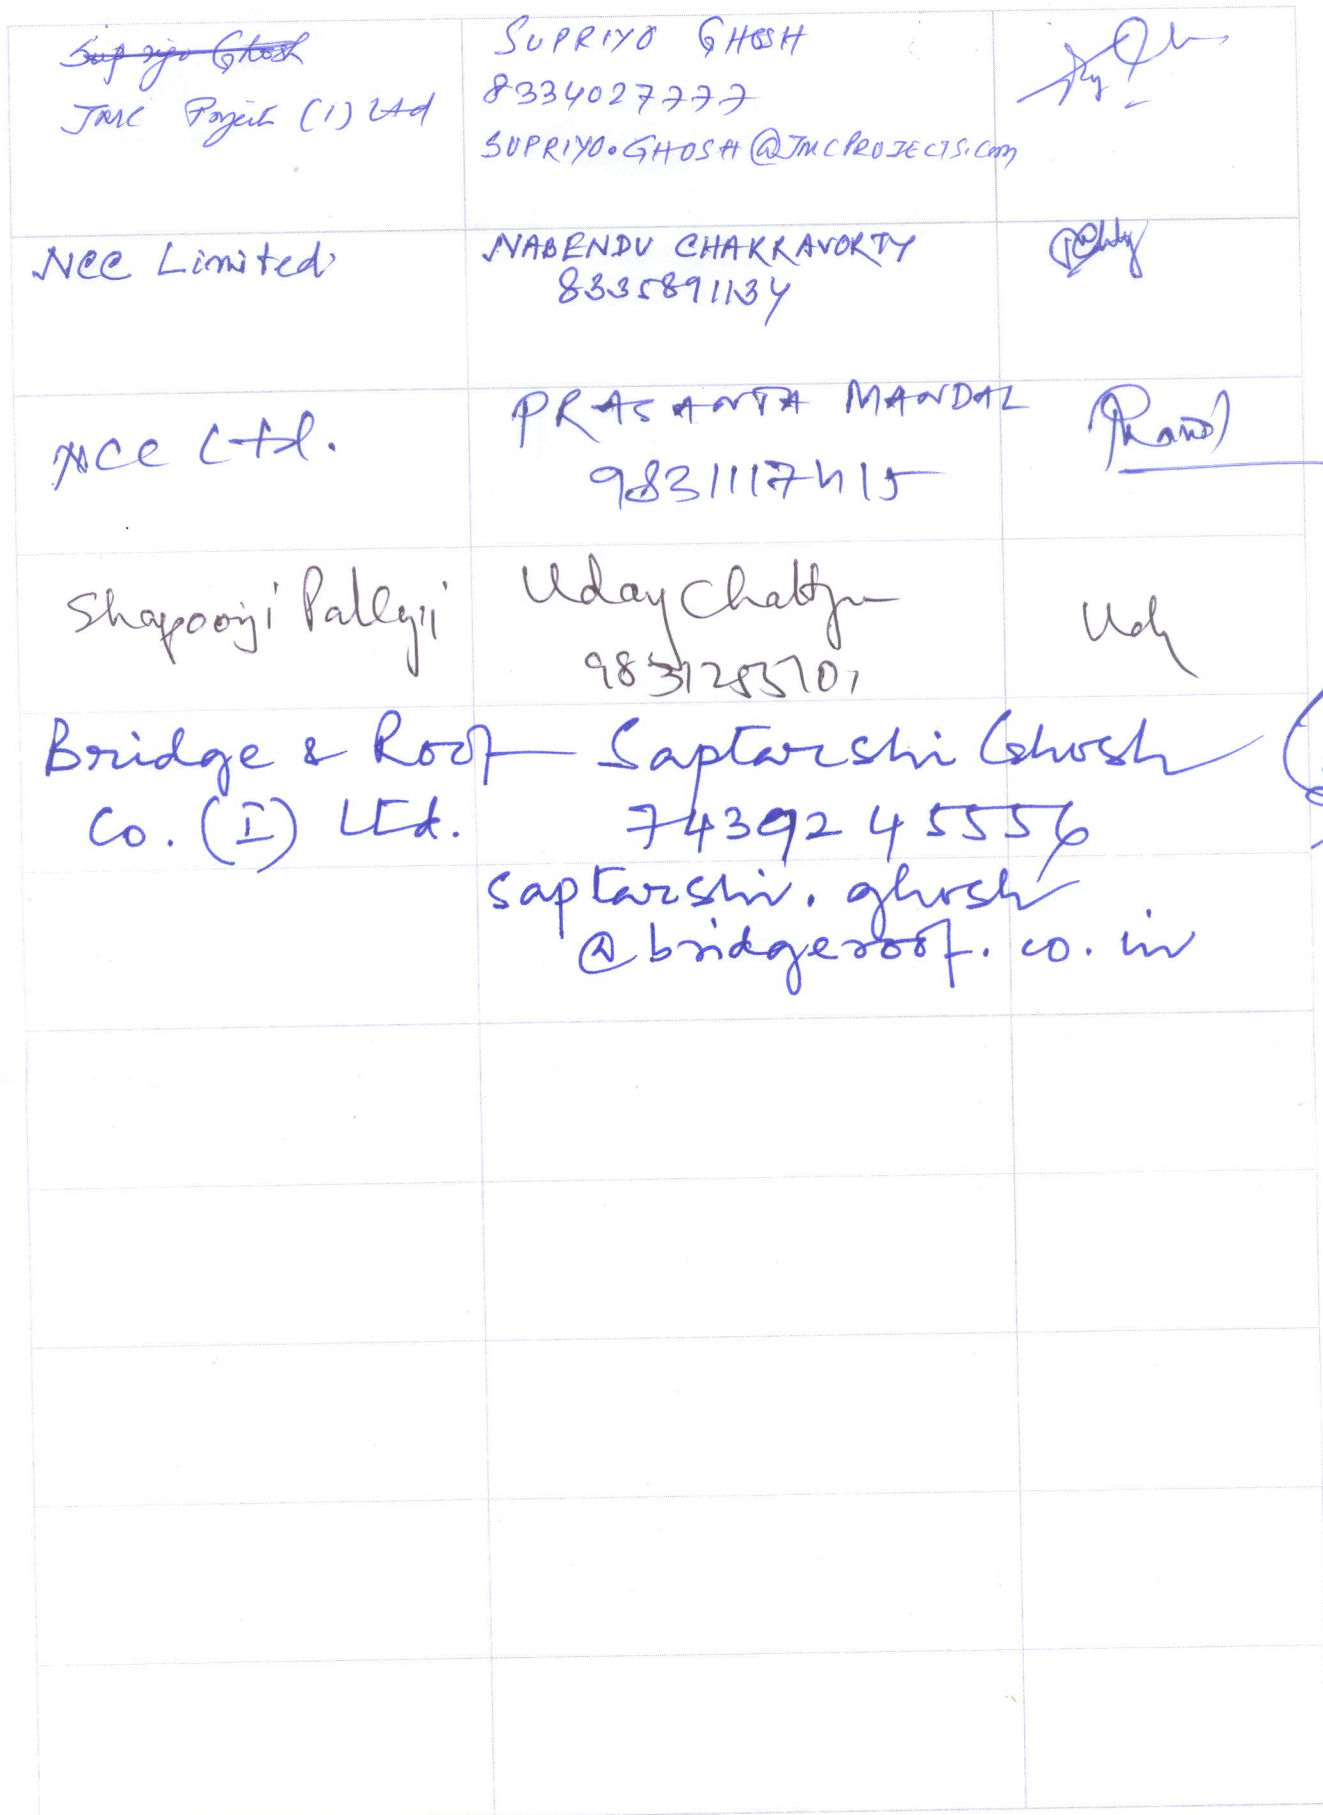 Supriyo Ghosh
JMC Projects (I) Ltd
SUPRIYO GHOSH
8334027777
SUPRIYO.GHOSH@JMCPROJECTS.COM
NCC Limited
NABENDU CHAKRAVORTY
8335891134
NCC Ltd.
PRASANTA MANDAL
9831117415
Shapoorji Pallonji
Uday
Uday
Bridge & Roof
Co. (I) Ltd.
Saptarshi Ghosh
7439245556
saptarshi.ghosh
@bridgeroof.co.in